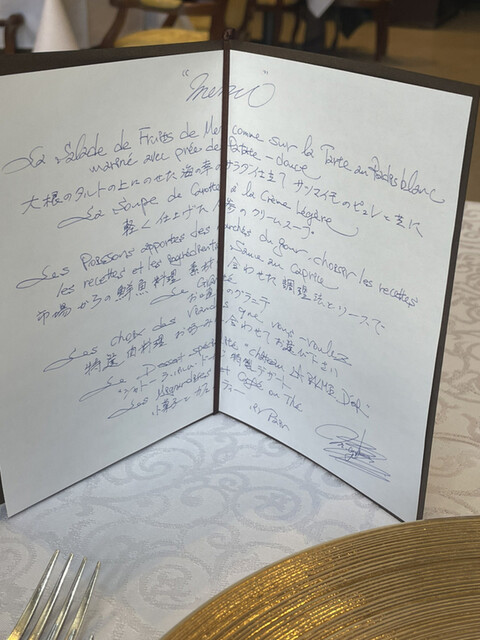 "Menu"
La Salade de Fruits de Mer comme sur la Tarte au Radis blanc
mariné avec purée de Patate-douce
大根のタルトの上にのせた海の幸のサラダ仕立て サツマイモのピュレと共に
La Soupe de Carotte à la Crème légère
軽く仕上げた人参のクリームスープ
Les Poissons apportés des marchés du jour choisir les recettes
les recettes et les Sauce au caprice
市場からの鮮魚料理 素材に合わせた調理法とソースで
Le Granité
お口直しのグラニテ
Les choix des viandes que vous voulez
特選肉料理 お好みに合わせてお選び下さい
Le Dessert château
特製デザート
Les Mignardises et Café ou Thé
小菓子とカフェ
le Pain